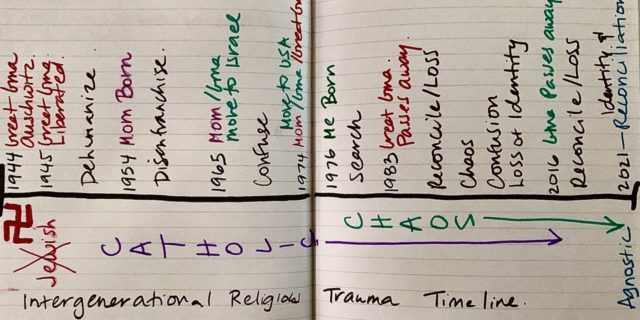 1944 Great Gma
Auschwitz
1945 Great Gma
Liberated.
Dehumanize
1954 Mom Born
Disenfranchise.
1965 Mom/Gma
move to Israel
Confuse
1974 Move to USA
Mom/Gma/Great Gma
1976 Me Born
Search
1983 Great Gma.
Passes away.
Reconcile/Loss
Chaos
Confusion
Loss of Identity
2016 Gma Passes away
Reconcile/Loss
2021 - Identity &
Reconciliation
Jewish
CATHOLIC
CHAOS
Agnostic
Intergenerational Religious Trauma Timeline.